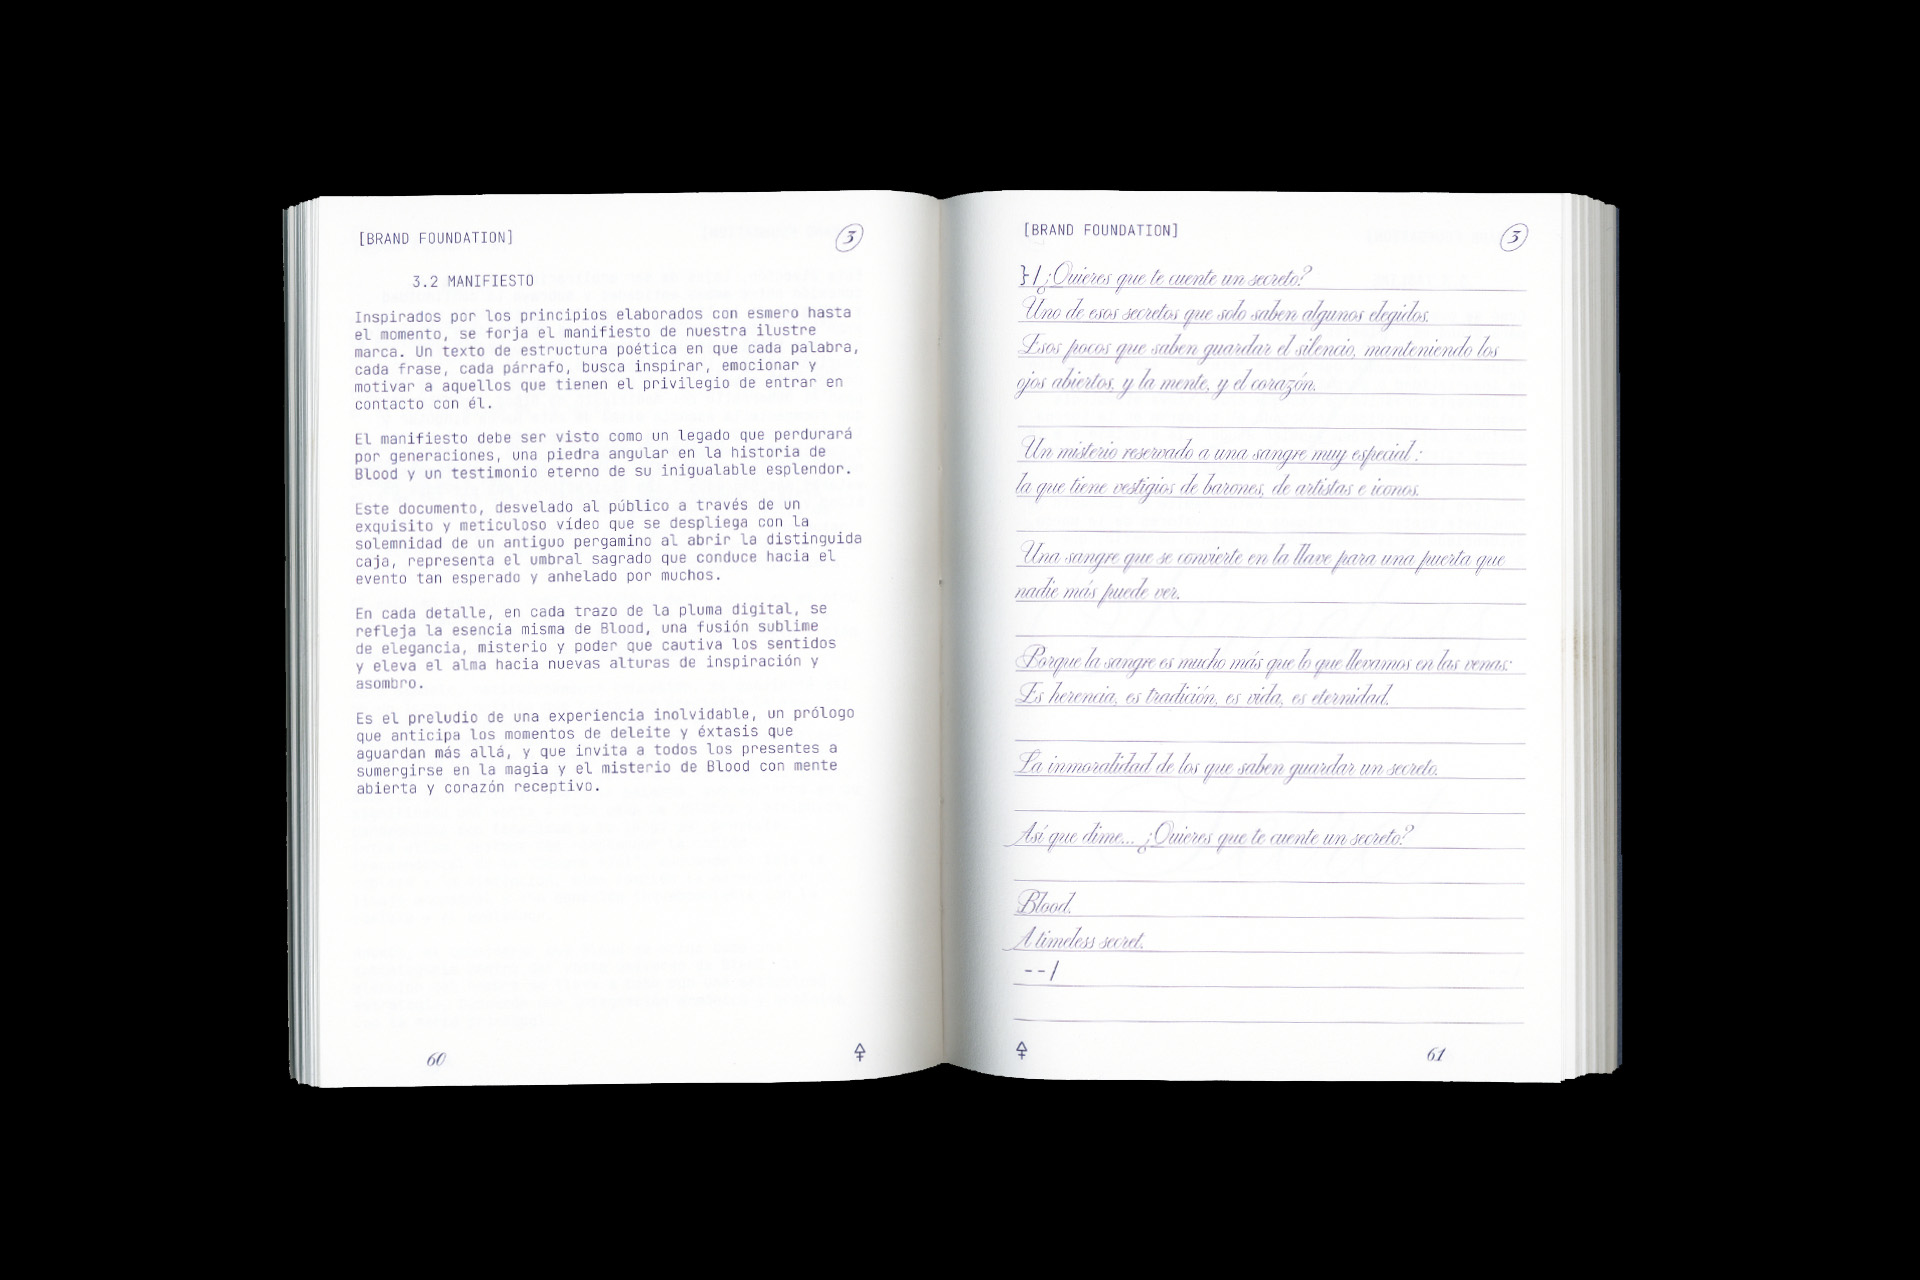 [BRAND FOUNDATION]
3
3.2 MANIFIESTO
Inspirados por los principios elaborados con esmero hasta
el momento, se forja el manifiesto de nuestra ilustre
marca. Un texto de estructura poética en que cada palabra,
cada frase, cada párrafo, busca inspirar, emocionar y
motivar a aquellos que tienen el privilegio de entrar en
contacto con él.
El manifiesto debe ser visto como un legado que perdurará
por generaciones, una piedra angular en la historia de
Blood y un testimonio eterno de su inigualable esplendor.
Este documento, desvelado al público a través de un
exquisito y meticuloso vídeo que se despliega con la
solemnidad de un antiguo pergamino al abrir la distinguida
caja, representa el umbral sagrado que conduce hacia el
evento tan esperado y anhelado por muchos.
En cada detalle, en cada trazo de la pluma digital, se
refleja la esencia misma de Blood, una fusión sublime
de elegancia, misterio y poder que cautiva los sentidos
y eleva el alma hacia nuevas alturas de inspiración y
asombro.
Es el preludio de una experiencia inolvidable, un prólogo
que anticipa los momentos de deleite y éxtasis que
aguardan más allá, y que invita a todos los presentes a
sumergirse en la magia y el misterio de Blood con mente
abierta y corazón receptivo.
60
[BRAND FOUNDATION]
3
}/¿Quieres que te cuente un secreto?
Uno de esos secretos que solo saben algunos elegidos.
Esos pocos que saben guardar el silencio, manteniendo los
ojos abiertos, y la mente, y el corazón.
Un misterio reservado a una sangre muy especial:
la que tiene vestigios de barones, de artistas e iconos.
Una sangre que se convierte en la llave para una puerta que
nadie más puede ver.
Porque la sangre es mucho más que lo que llevamos en las venas:
Es herencia, es tradición, es vida, es eternidad.
La inmoralidad de los que saben guardar un secreto.
Así que dime... ¿Quieres que te cuente un secreto?
Blood.
A timeless secret.
--/
61